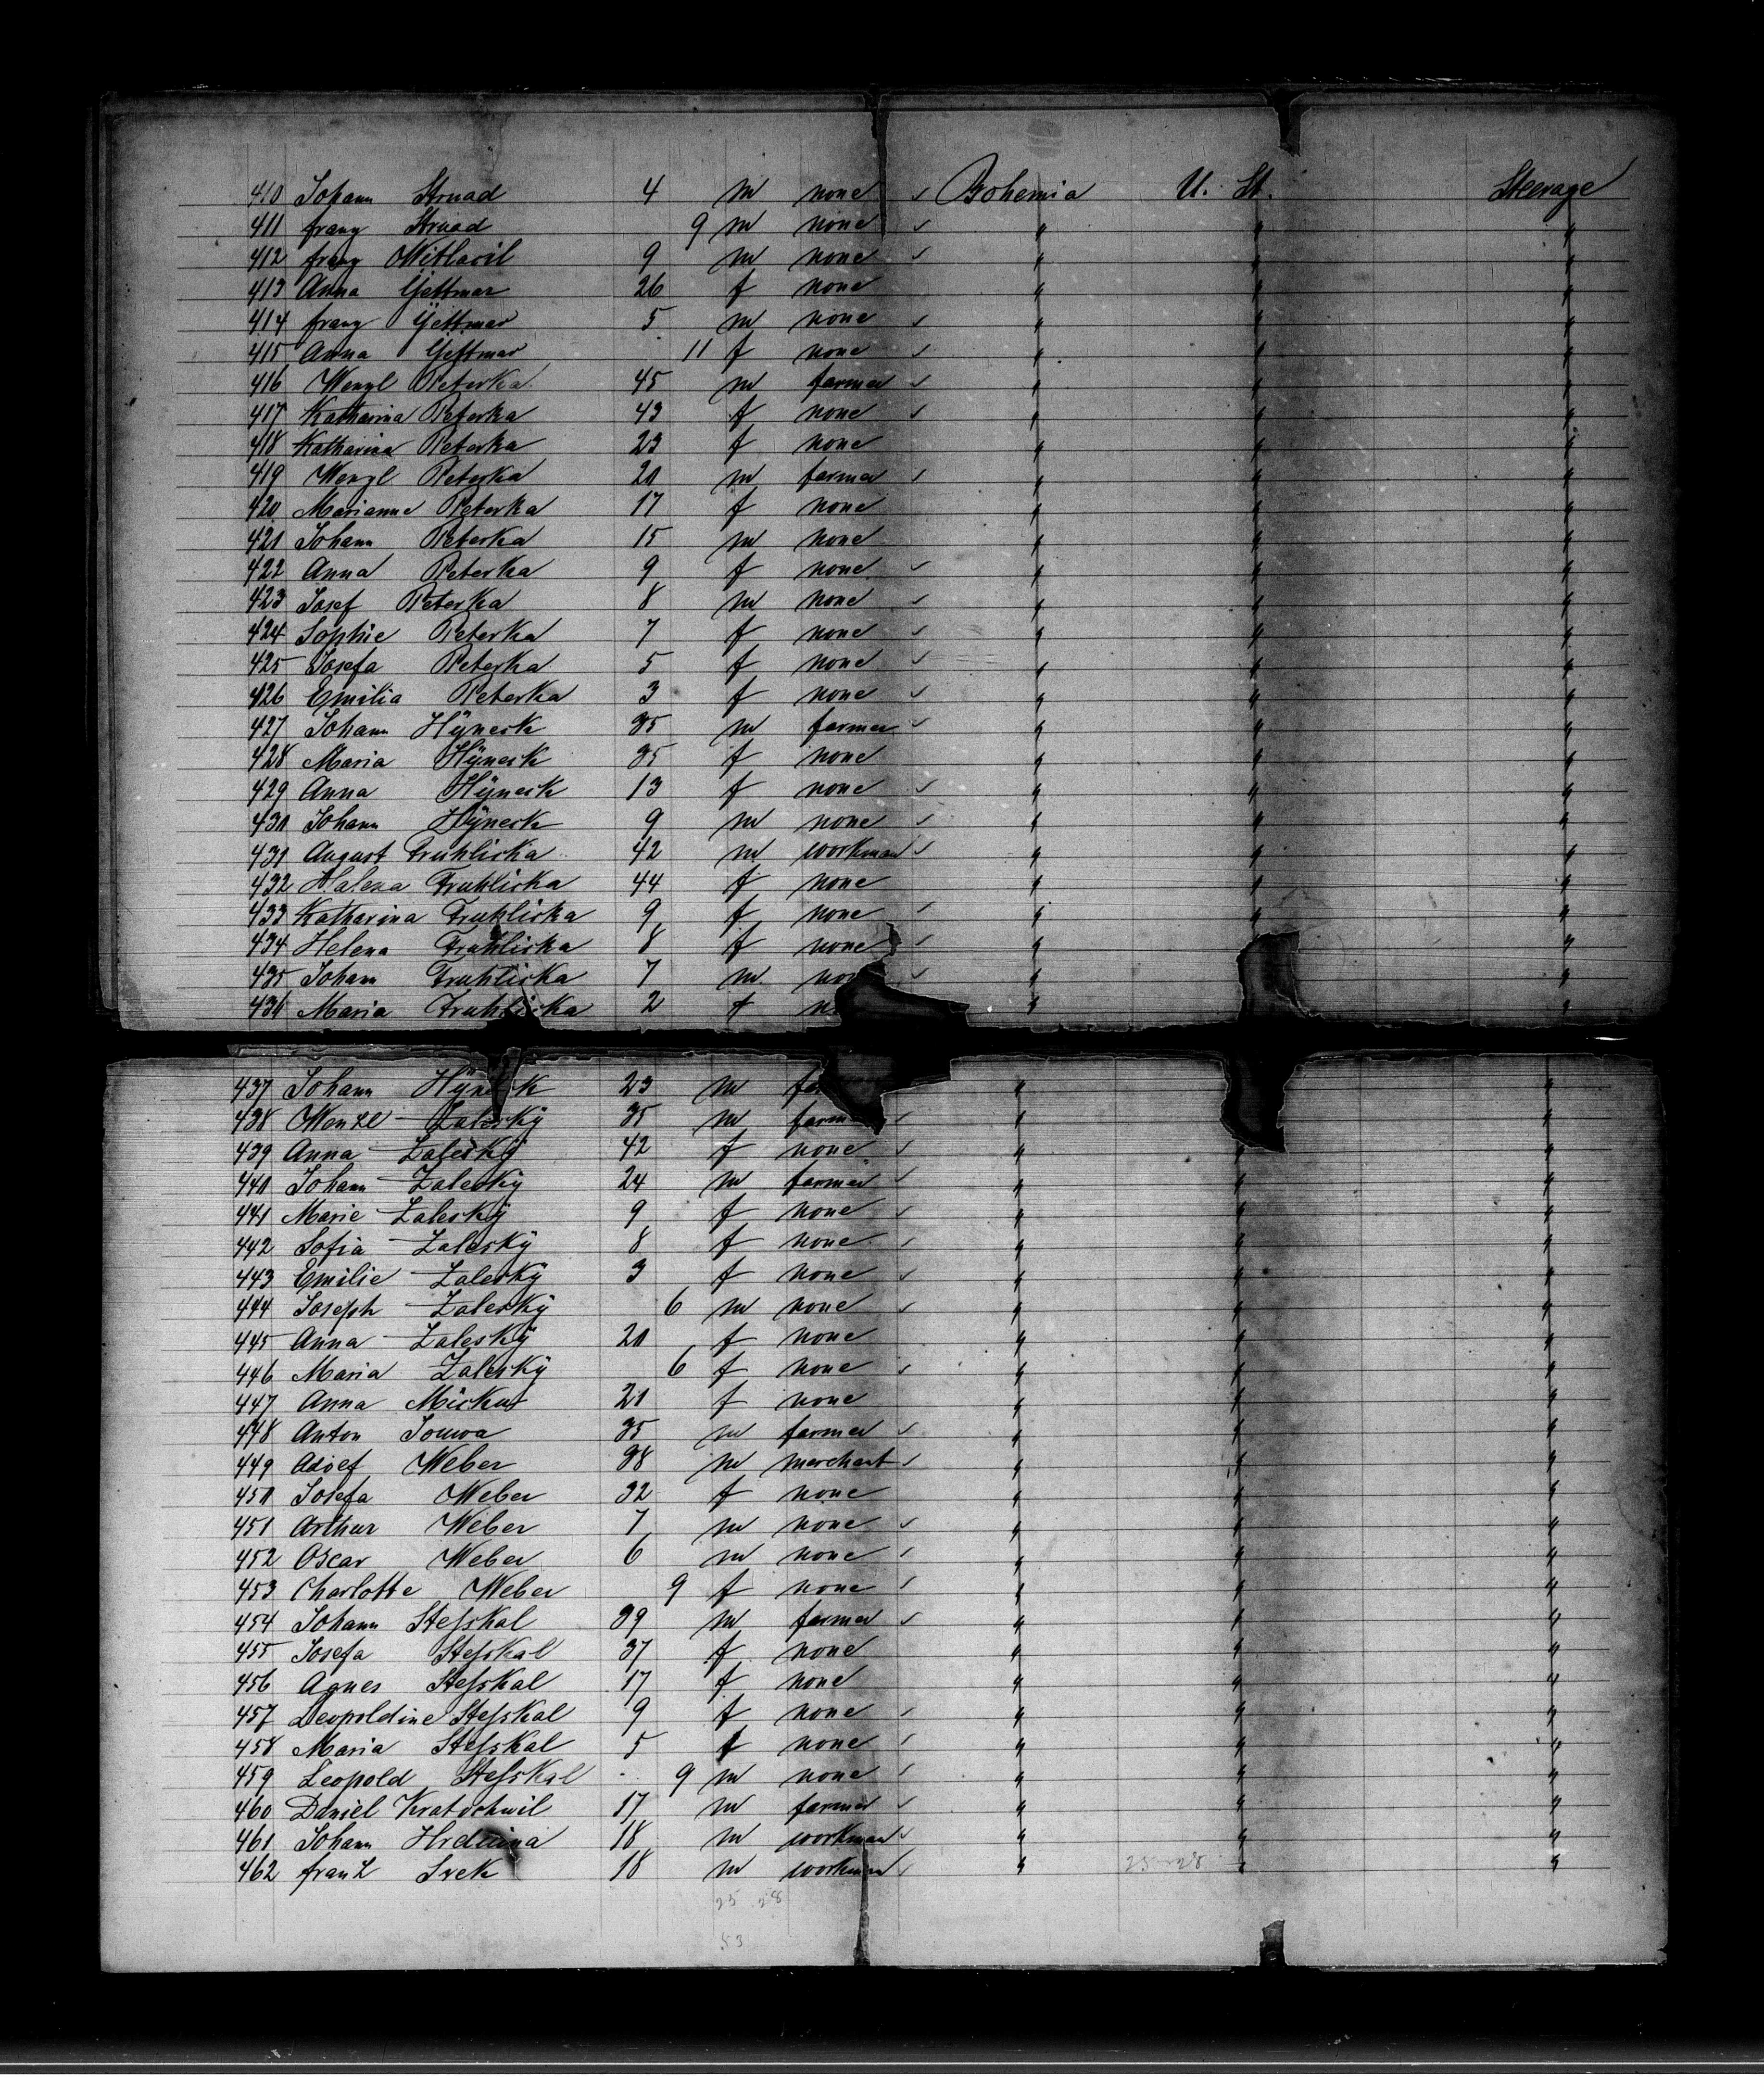 410 Johann Strnad 4 m none ✓ Bohemia U. St. Steerage
411 franz Strnad 9 m none ✓ " " "
412 franz Witlacil 9 m none ✓ " " "
413 Anna Gettmar 26 f none " " "
414 franz Gettmar 5 m none ✓ " " "
415 Anna Gettmar 11 f none ✓ " " "
416 Wenzl Peterka 45 m farmer ✓ " " "
417 Katharina Peterka 43 f none ✓ " " "
418 Katharina Peterka 23 f none " " "
419 Wenzl Peterka 20 m farmer ✓ " " "
420 Marianne Peterka 17 f none " " "
421 Johann Peterka 15 m none " " "
422 Anna Peterka 9 f none ✓ " " "
423 Josef Peterka 8 m none ✓ " " "
424 Sophie Peterka 7 f none ✓ " " "
425 Josefa Peterka 5 f none ✓ " " "
426 Emilia Peterka 3 f none ✓ " " "
427 Johann Hÿneck 35 m farmer ✓ " " "
428 Maria Hÿneck 35 f none " " "
429 Anna Hÿneck 13 f none ✓ " " "
430 Johann Hÿneck 9 m none ✓ " " "
431 August Truhlicka 42 m workman ✓ " " "
432 Halena Truhlicka 44 f none " " "
433 Katharina Truhlicka 9 f none ✓ " " "
434 Helena Truhlicka 8 f none ✓ " " "
435 Johann Truhlicka 7 m non ✓ " "
436 Maria Truhlicka 2 f n " "
437 Johann Hÿneck 23 m fa " "
438 Wenzl Zaleskÿ 35 m farm ✓ " "
439 Anna Zaleskÿ 42 f none ✓ " " "
440 Johann Zaleskÿ 24 m farmer ✓ " " "
441 Marie Zaleskÿ 9 f none ✓ " " "
442 Sofia Zaleskÿ 8 f none ✓ " " "
443 Emilie Zaleskÿ 3 f none ✓ " " "
444 Joseph Zaleskÿ 6 m none ✓ " " "
445 Anna Zaleskÿ 20 f none " " "
446 Maria Zaleskÿ 6 f none ✓ " " "
447 Anna Mickus 21 f none " " "
448 Anton Souwa 35 m farmer ✓ " " "
449 Adolf Weber 38 m merchant ✓ " " "
450 Josefa Weber 32 f none " " "
451 Arthur Weber 7 m none ✓ " " "
452 Oscar Weber 6 m none ✓ " " "
453 Charlotte Weber 9 f none ✓ " " "
454 Johann Steſskal 39 m farmer ✓ " " "
455 Josefa Steſskal 37 f none " " "
456 Agnes Steſskal 17 f none " " "
457 Leopoldine Steſskal 9 f none ✓ " " "
458 Maria Steſskal 5 f none ✓ " " "
459 Leopold Steſskal 9 m none ✓ " " "
460 Daniel Kratochwil 17 m farmer ✓ " " "
461 Johann Hrdlicina 18 m workman ✓ " " "
462 franz Srek 18 m workman ✓ " 25 28 " "
25 28
53